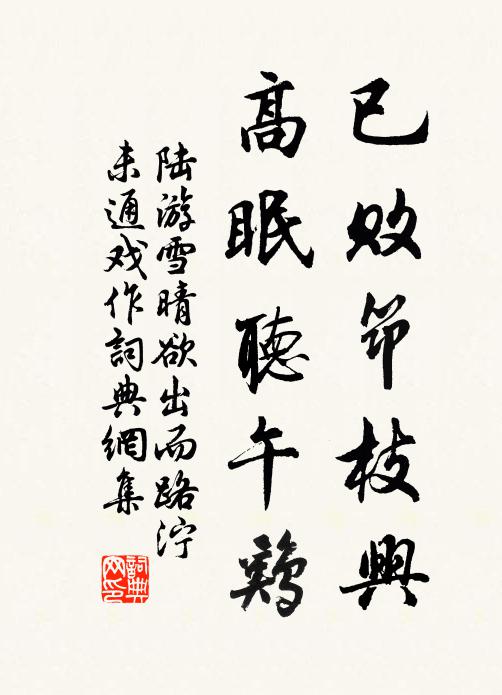 已败笻枝興
高眠聴午鷄
陆游雪晴欲出而路泞
未通戏作詞典網集
詞典网印